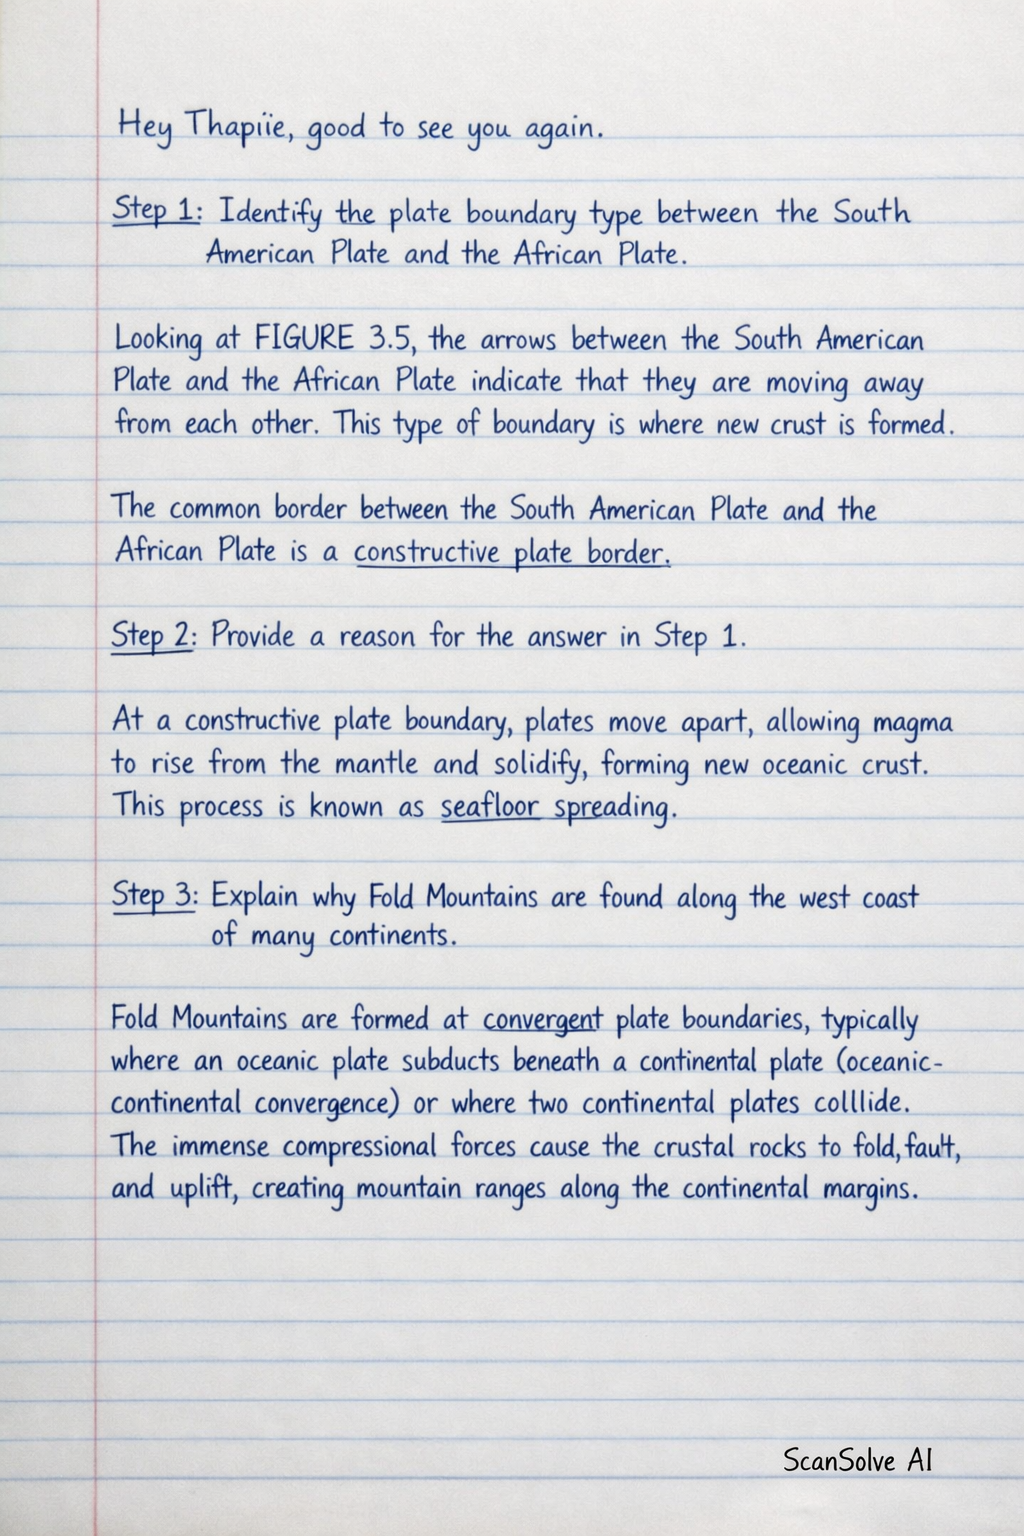 Hey Thapiïe, good to see you again.
Step 1: Identify the plate boundary type between the South
American Plate and the African Plate.
Looking at FIGURE 3.5, the arrows between the South American
Plate and the African Plate indicate that they are moving away
from each other. This type of boundary is where new crust is formed.
The common border between the South American Plate and the
African Plate is a constructive plate border.
Step 2: Provide a reason for the answer in Step 1.
At a constructive plate boundary, plates move apart, allowing magma
to rise from the mantle and solidify, forming new oceanic crust.
This process is known as seafloor spreading.
Step 3: Explain why Fold Mountains are found along the west coast
of many continents.
Fold Mountains are formed at convergent plate boundaries, typically
where an oceanic plate subducts beneath a continental plate (oceanic-
continental convergence) or where two continental plates colllide.
The immense compressional forces cause the crustal rocks to fold, fault,
and uplift, creating mountain ranges along the continental margins.
ScanSolve AI